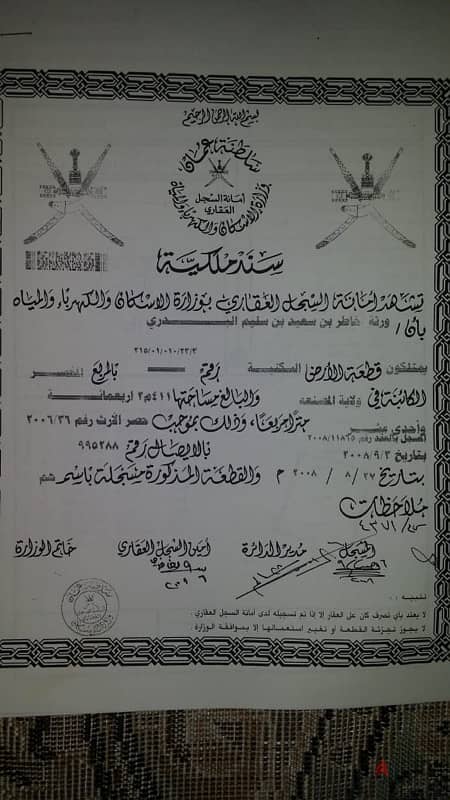 بسم الله الرحمن الرحيم
سلطنة عمان
وزارة الاسكان والكهرباء والمياه
أمانة السجل
العقاري
سند ملكية
تشهد أمانة السجل العقاري بوزارة الاسكان والكهرباء والمياه
بأن / ورثة خاطر بن سعيد بن سليم البدري
٢١٥/٠١/٠١٠/٢٢/٣
يمتلكون قطعة الأرض السكنية رقم ــ بالمربع
الكائنة في ولاية المصنعه والبالغ مساحتها ٤١١م٢ اربعمائة
وأحدى عشر مترا مربعا، وذلك بموجب حصر الأرث رقم ٢٠٠٦/٣٦
المسجل بالعقد رقم ٢٠٠٨/١١٨٢٥
بتاريخ ٢٠٠٨/٩/٢ بالايصال رقم ٩٩٥٢٨٨
بتاريخ ٢٧ / ٨ / ٢٠٠٨ م والقطعة المذكورة مسجلة باسم هم
ملاحظات
المسجل مدير الدائرة أمين السجل العقاري خاتم الوزارة
تنبيه :
لا يعتد بأي تصرف كان على العقار إلا إذا تم تسجيله لدى أمانة السجل العقاري .
لا يجوز تجزئة القطعة أو تغيير استعمالها إلا بموافقة الوزارة .